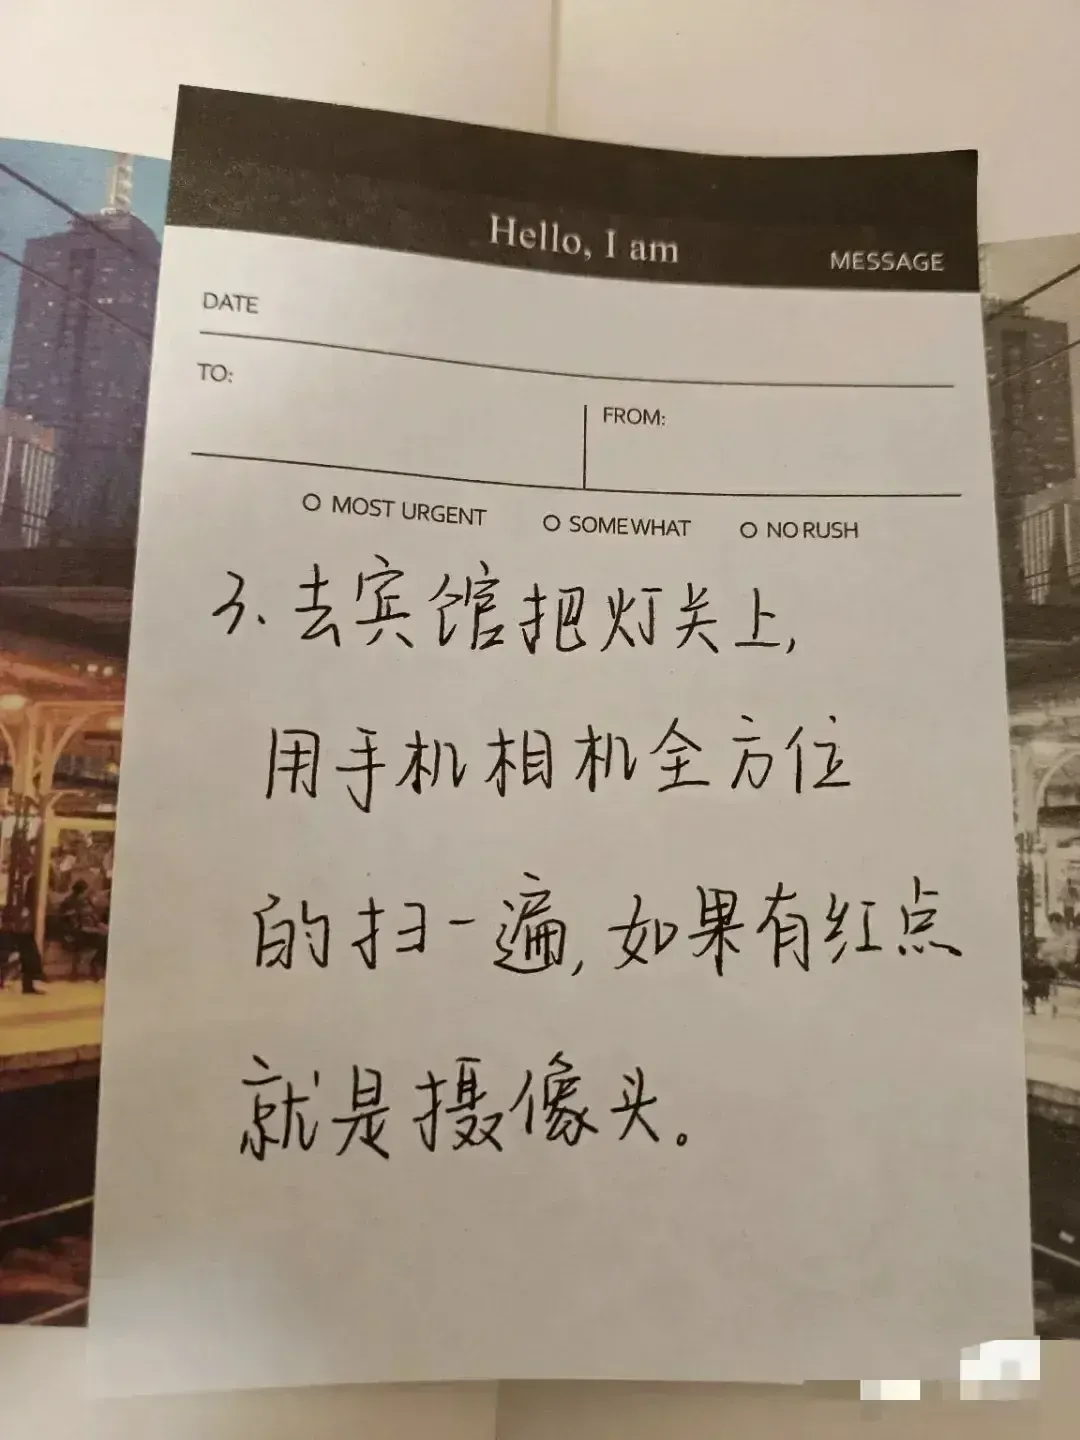 Hello, I am
MESSAGE
DATE
TO:
FROM:
MOST URGENT
SOMEWHAT
NO RUSH
3、去宾馆把灯关上,
用手机相机全方位
的扫一遍,如果有红点
就是摄像头。